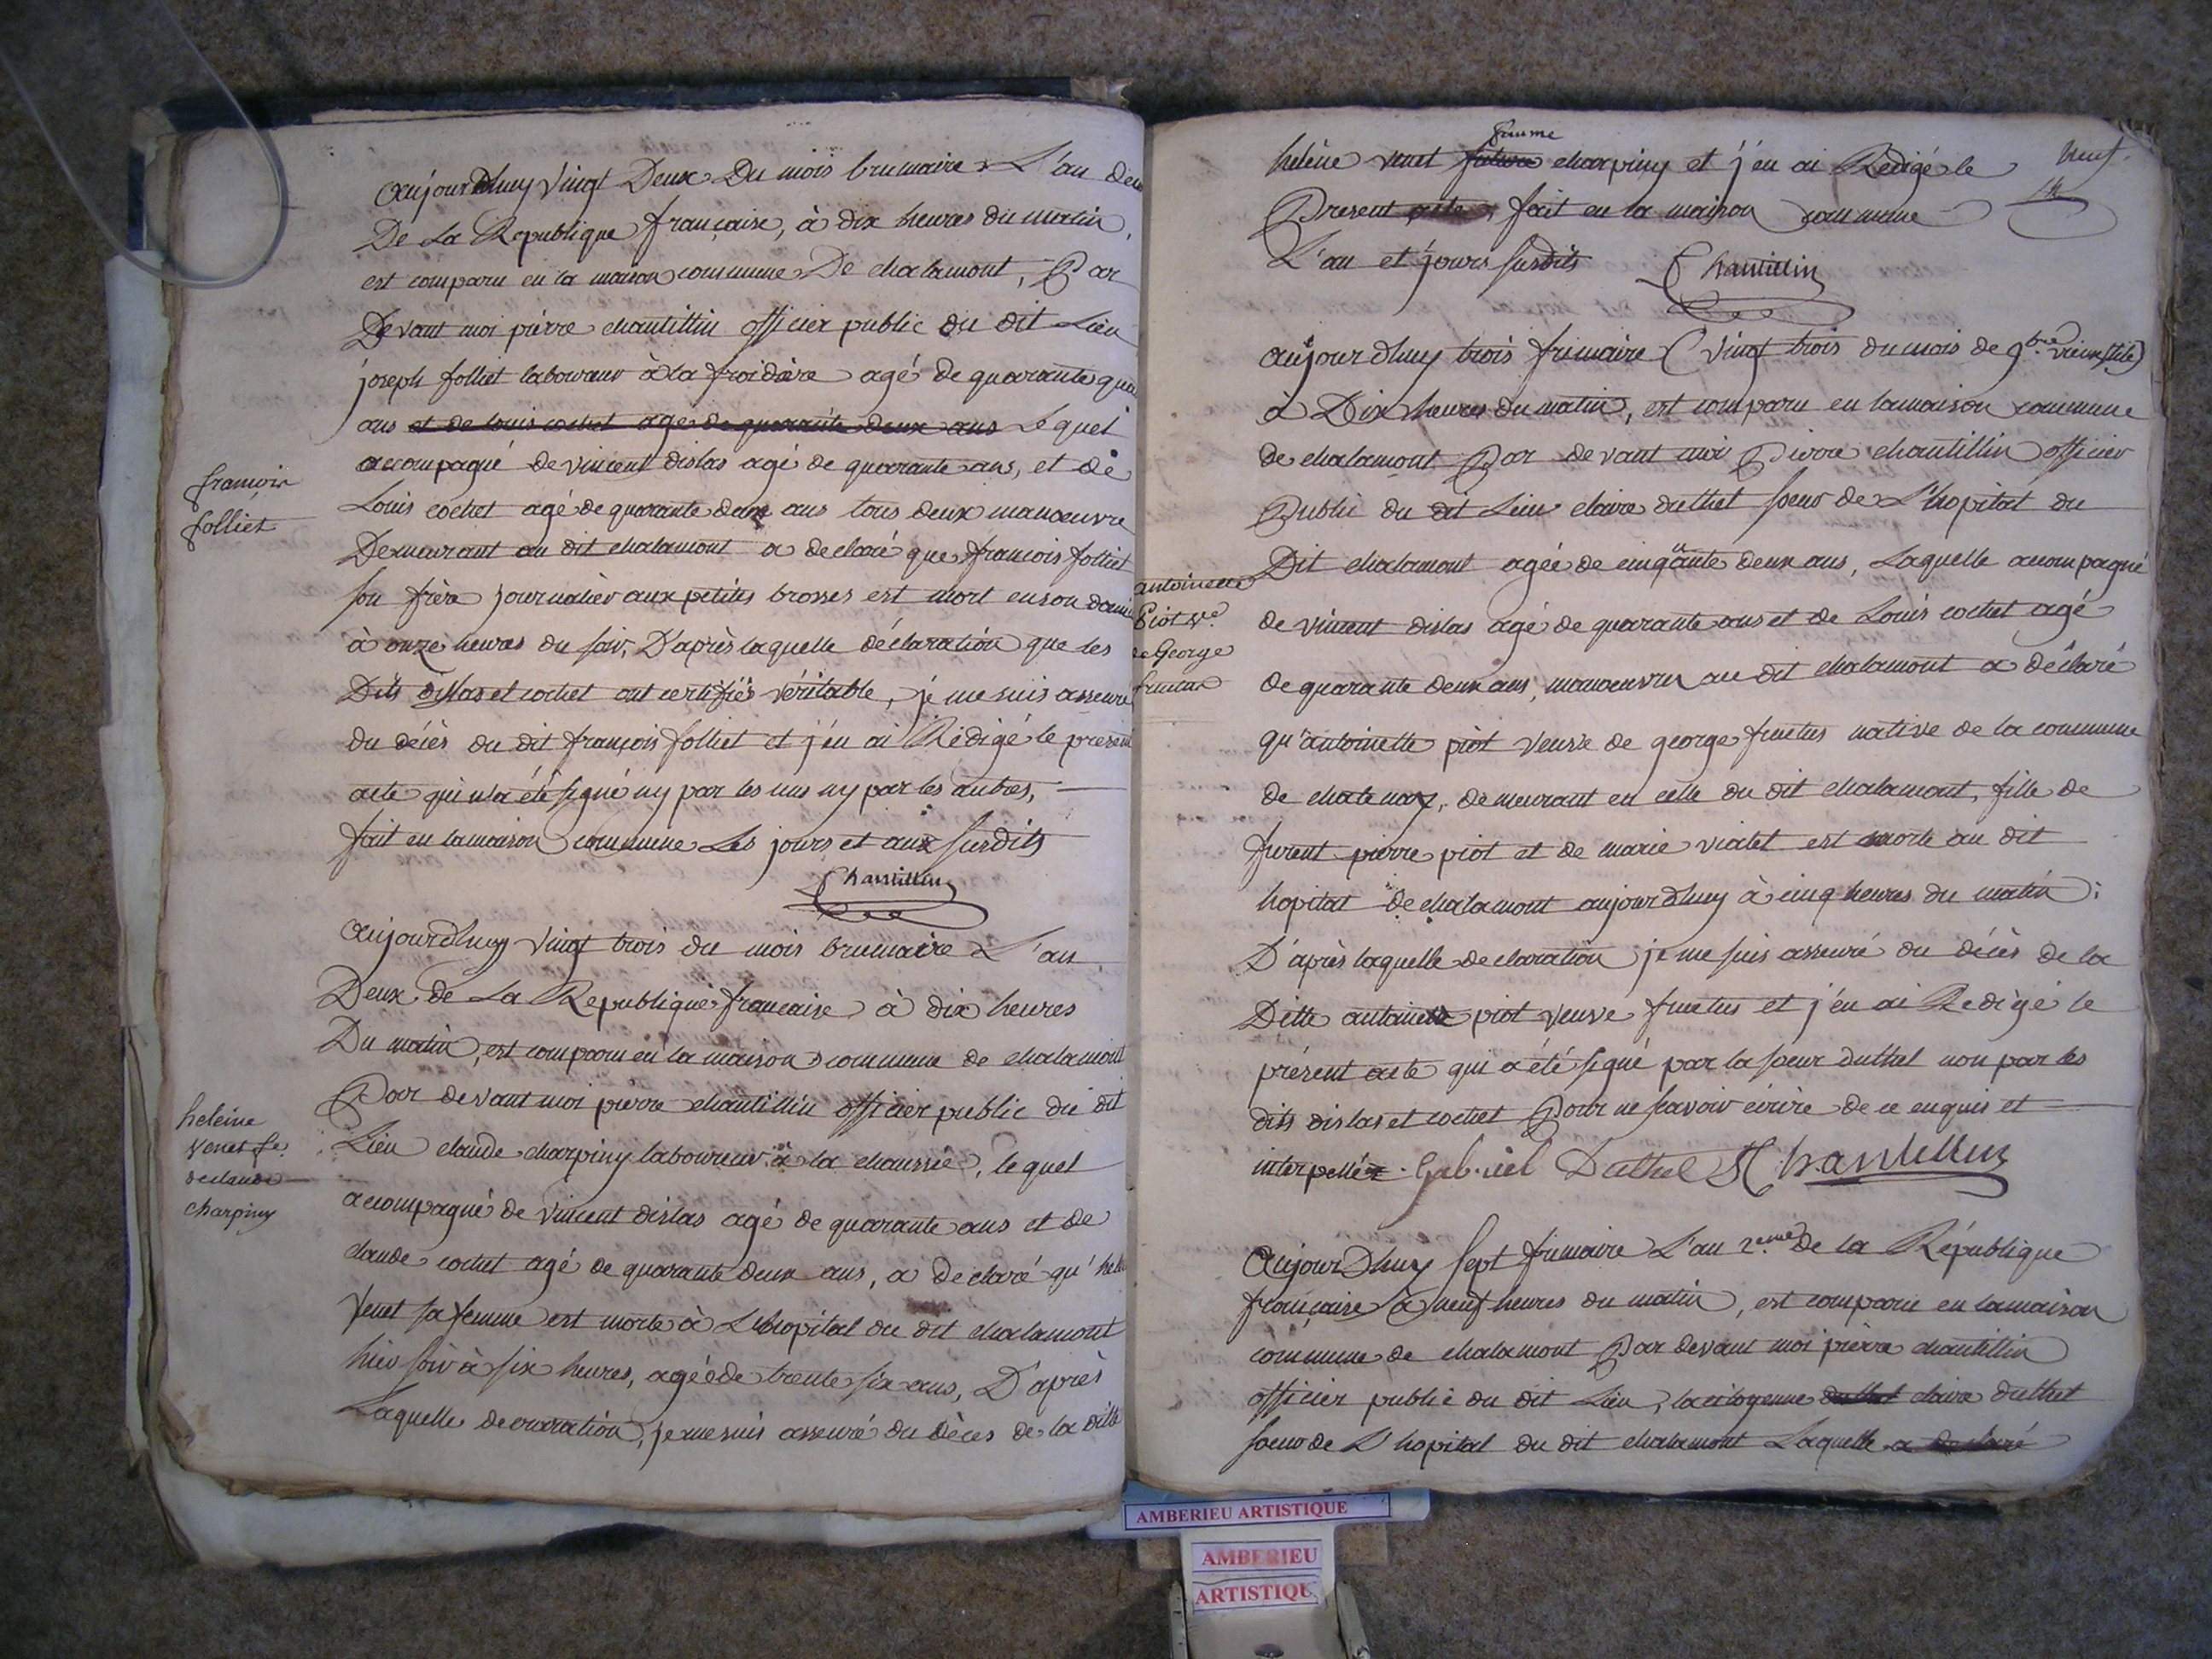 aujourdhuy vingt Deux Du mois brumaire L'an deux
De La Republique française, à dix heures du matin,
est comparu en la maison commune De chalamont, Par
Devant moi pierre chantillin officier public du dit Lieu
joseph folliet laboureur à la froidière agé de quarante
ans et de louis cochet agé de quarante deux ans Lequel
accompagné de vincent dislas agé de quarante ans, et de
Louis cochet agé de quarante deux ans tous deux manoeuvre
Demeurant au dit chalamont a declaré que francois folliet
son frère journalier aux petites brosses est mort en son
à onze heures du soir, D'après laquelle déclaration que les
Dits dislas et cochet ont certifiés véritable, je me suis asseuré
du décès du dit françois folliet et j'en ai Rédigé le present
acte qui n'a été signé ny par les uns ny par les autres,
fait en la maison commune Les jours et an susdits
Chantillin
françois
folliet
aujourdhuy vingt trois du mois brumaire L'an
Deux de La Republique francaise à dix heures
Du matin, est comparu en la maison commune de chalamont
Par devant moi pierre chantillin officier public du dit
Lieu claude charpiny laboureur à la chaussée, lequel
accompagné de vincent dislas agé de quarante ans et de
claude cochet agé de quarante deux ans, a declaré qu'
venet sa femme est morte à L'hopital du dit chalamont
hier soir à six heures, agée de trente six ans, D'après
Laquelle declaration, je me suis asseuré du décès de la ditte
heleine
venet fe.
de claude
charpiny
neuf.
helène venet femme charpiny et j'en ai Redigé le
Present acte, fait en la maison commune
L'an et jours susdits Chantillin
aujourdhuy trois frimaire (vingt trois du mois de 9bre vieux stile)
à Dix heures du matin, est comparu en la maison commune
de chalamont Par devant moi Pierre chantillin officier
Public du dit Lieu claire duthel soeur de L'hopital du
Dit chalamont agée de cinquante deux ans, Laquelle accompagné
de vincent dislas agé de quarante ans et de Louis cochet agé
de quarante deux ans, manoeuvres au dit chalamont a déclaré
qu'antoinette piot veuve de george fructus native de la commune
de chatenay, demeurant en celle du dit chalamont, fille de
furent pierre piot et de marie violet est morte au dit
hopital de chalamont aujourdhuy à cinq heures du matin;
D'après laquelle declaration je me suis asseuré du décès de la
Ditte antoinette piot veuve fructus et j'en ai Redigé le
présent acte qui a été signé par la soeur duthel non par les
dits dislas et cochet Pour ne scavoir écrire de ce enquis et
interpellés. Gabriel Duthel Chantillin
antoinette
Piot ve.
de George
fructus
aujourdhuy sept frimaire L'an 2eme De la République
française à neuf heures du matin, est comparu en la maison
commune de chalamont Par devant moi pièrre chantillin
officier public du dit Lieu, la citoyenne duthel claire duthel
soeur de L'hopital du dit chalamont Laquelle a declaré
AMBERIEU ARTISTIQUE
AMBERIEU
ARTISTIQU